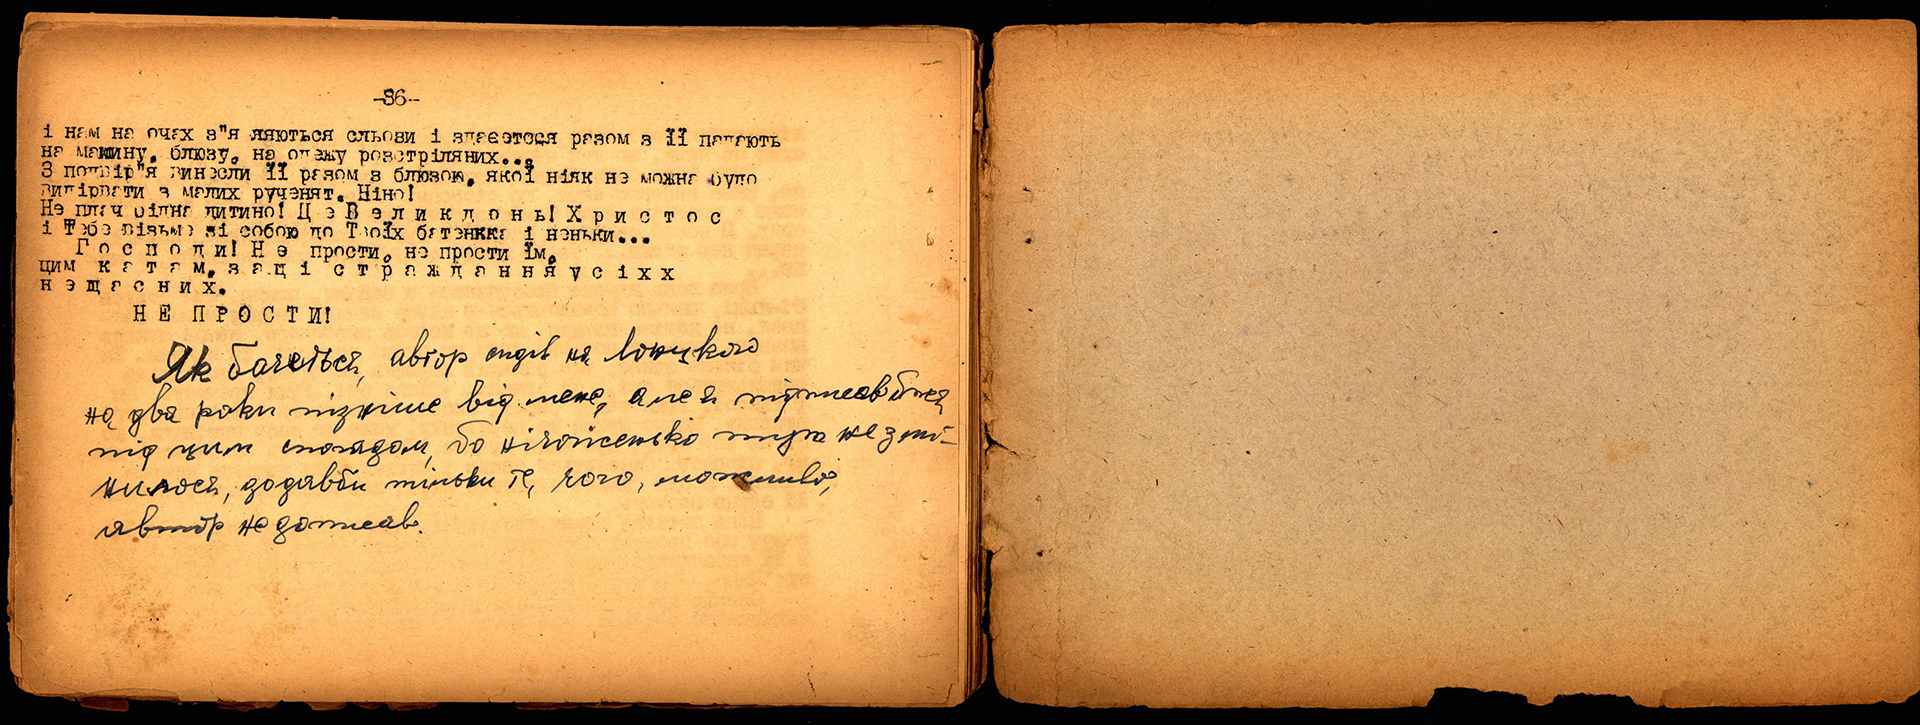 -36-
і нам на очах з"я ляються сльози і здаєэтося разом з її падають
на машину, блюзу, на одежу розстріляних...
З подвір"я винэсли її разом з блюзою, якої ніяк нэ можна було
видірвати з малих рученят. Ніно!
Нэ плач бідна дитино! Ц э В э л и к д э н ь! Х р и с т о с
і Тебе візьмэ зі собою до Твоїх батэнька і нэньки...
Г о с п о д и! Н э прости, нэ прости їм,
цим к а т а м, з а ц і с т р а ж д а н н я у с і х х
н э щ а с н и х.
Н Е П Р О С Т И!
Як бачеться, автор сидів на Лонцкого
на два роки пізніше від мене, але я підписав би ся
під цим спогадом, бо нічогісенько там не змі-
нилося, додавби тільки те, чого, можливо,
автор не дописав.